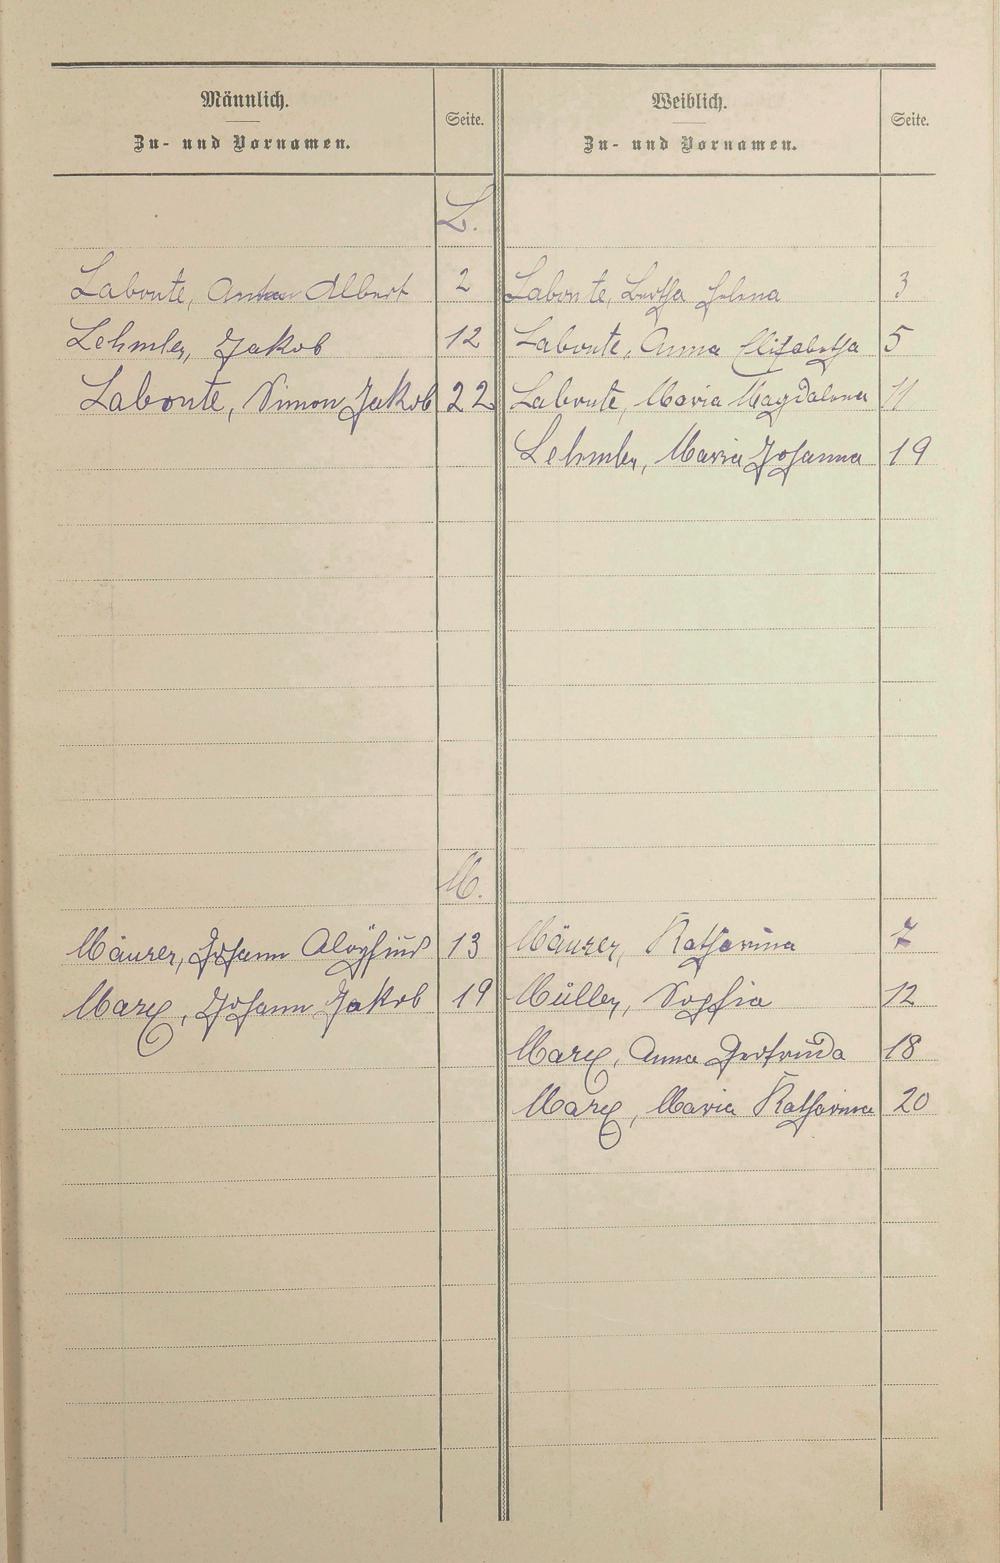 Männlich.
Zu- und Vornamen.
Seite.
Weiblich.
Zu- und Vornamen.
Seite.
L.
Labonte, Anton Albert 2 Labonte, Bertha Helena 3
Lehmler, Jakob 12 Labonte, Anna Elisabetha 5
Labonte, Simon Jakob 22 Labonte, Maria Magdalena 11
Lehmler, Maria Johanna 19
M.
Mäurer, Johann Aloysius 13 Mäurer, Katharina 7
Marx, Johann Jakob 19 Müller, Sophia 12
Marx, Anna Gertruda 18
Marx, Maria Katharina 20